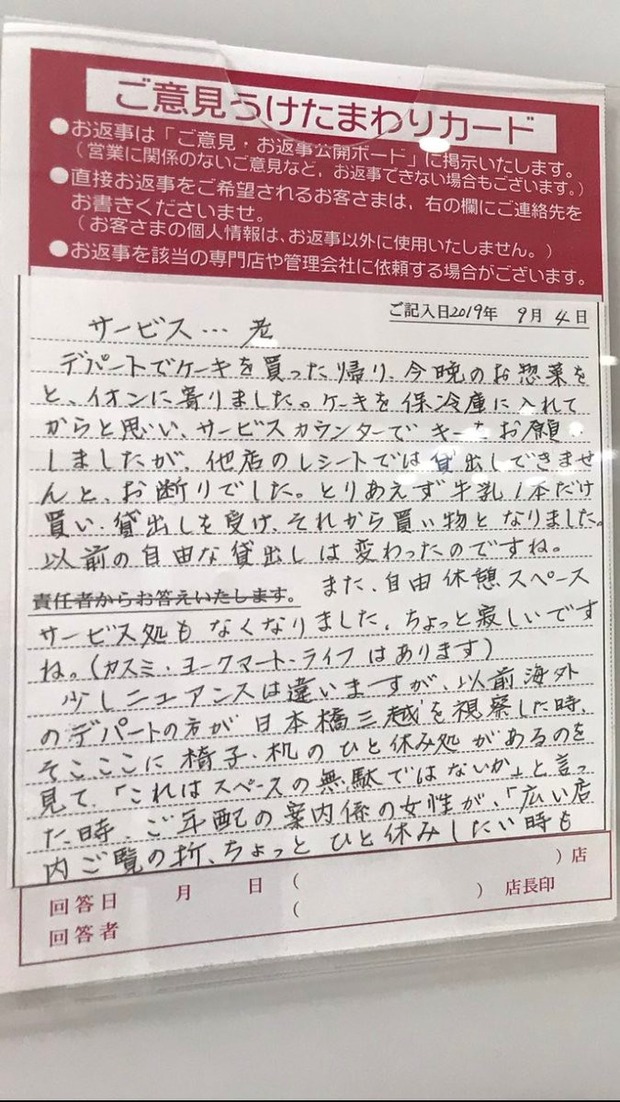 ご意見うけたまわりカード
●お返事は「ご意見・お返事公開ボード」に掲示いたします。
(営業に関係のないご意見など，お返事できない場合もございます。)
●直接お返事をご希望されるお客さまは，右の欄にご連絡先を
お書きくださいませ。
(お客さまの個人情報は，お返事以外に使用いたしません。)
●お返事を該当の専門店や管理会社に依頼する場合がございます。
ご記入日2019年 9月 4日
サービス…
デパートでケーキを買った帰り、今晩のお惣菜を
と、イオンに寄りました。ケーキを保冷庫に入れて
からと思い、サービスカウンターでキーをお願い
しましたが、他店のレシートでは貸出しできませ
んと、お断りでした。とりあえず牛乳1本だけ
買い、貸出しを受け、それから買い物となりました。
以前の自由な貸出しは変わったのですね。
責任者からお答えいたします。 また、自由休憩スペース
サービス処もなくなりました。ちょっと寂しいです
ね。(カスミ・ヨークマート・ライフはあります)
少しニュアンスは違いますが、以前海外
のデパートの方が日本橋三越を視察した時、
そこここに椅子・机のひと休み処があるのを
見て、「これはスペースの無駄ではないか」と言っ
た時、ご年配の案内係の女性が、「広い店
内ご覧の折、ちょっとひと休みしたい時も
回答日 月 日 ( )店
回答者 ( ) 店長印